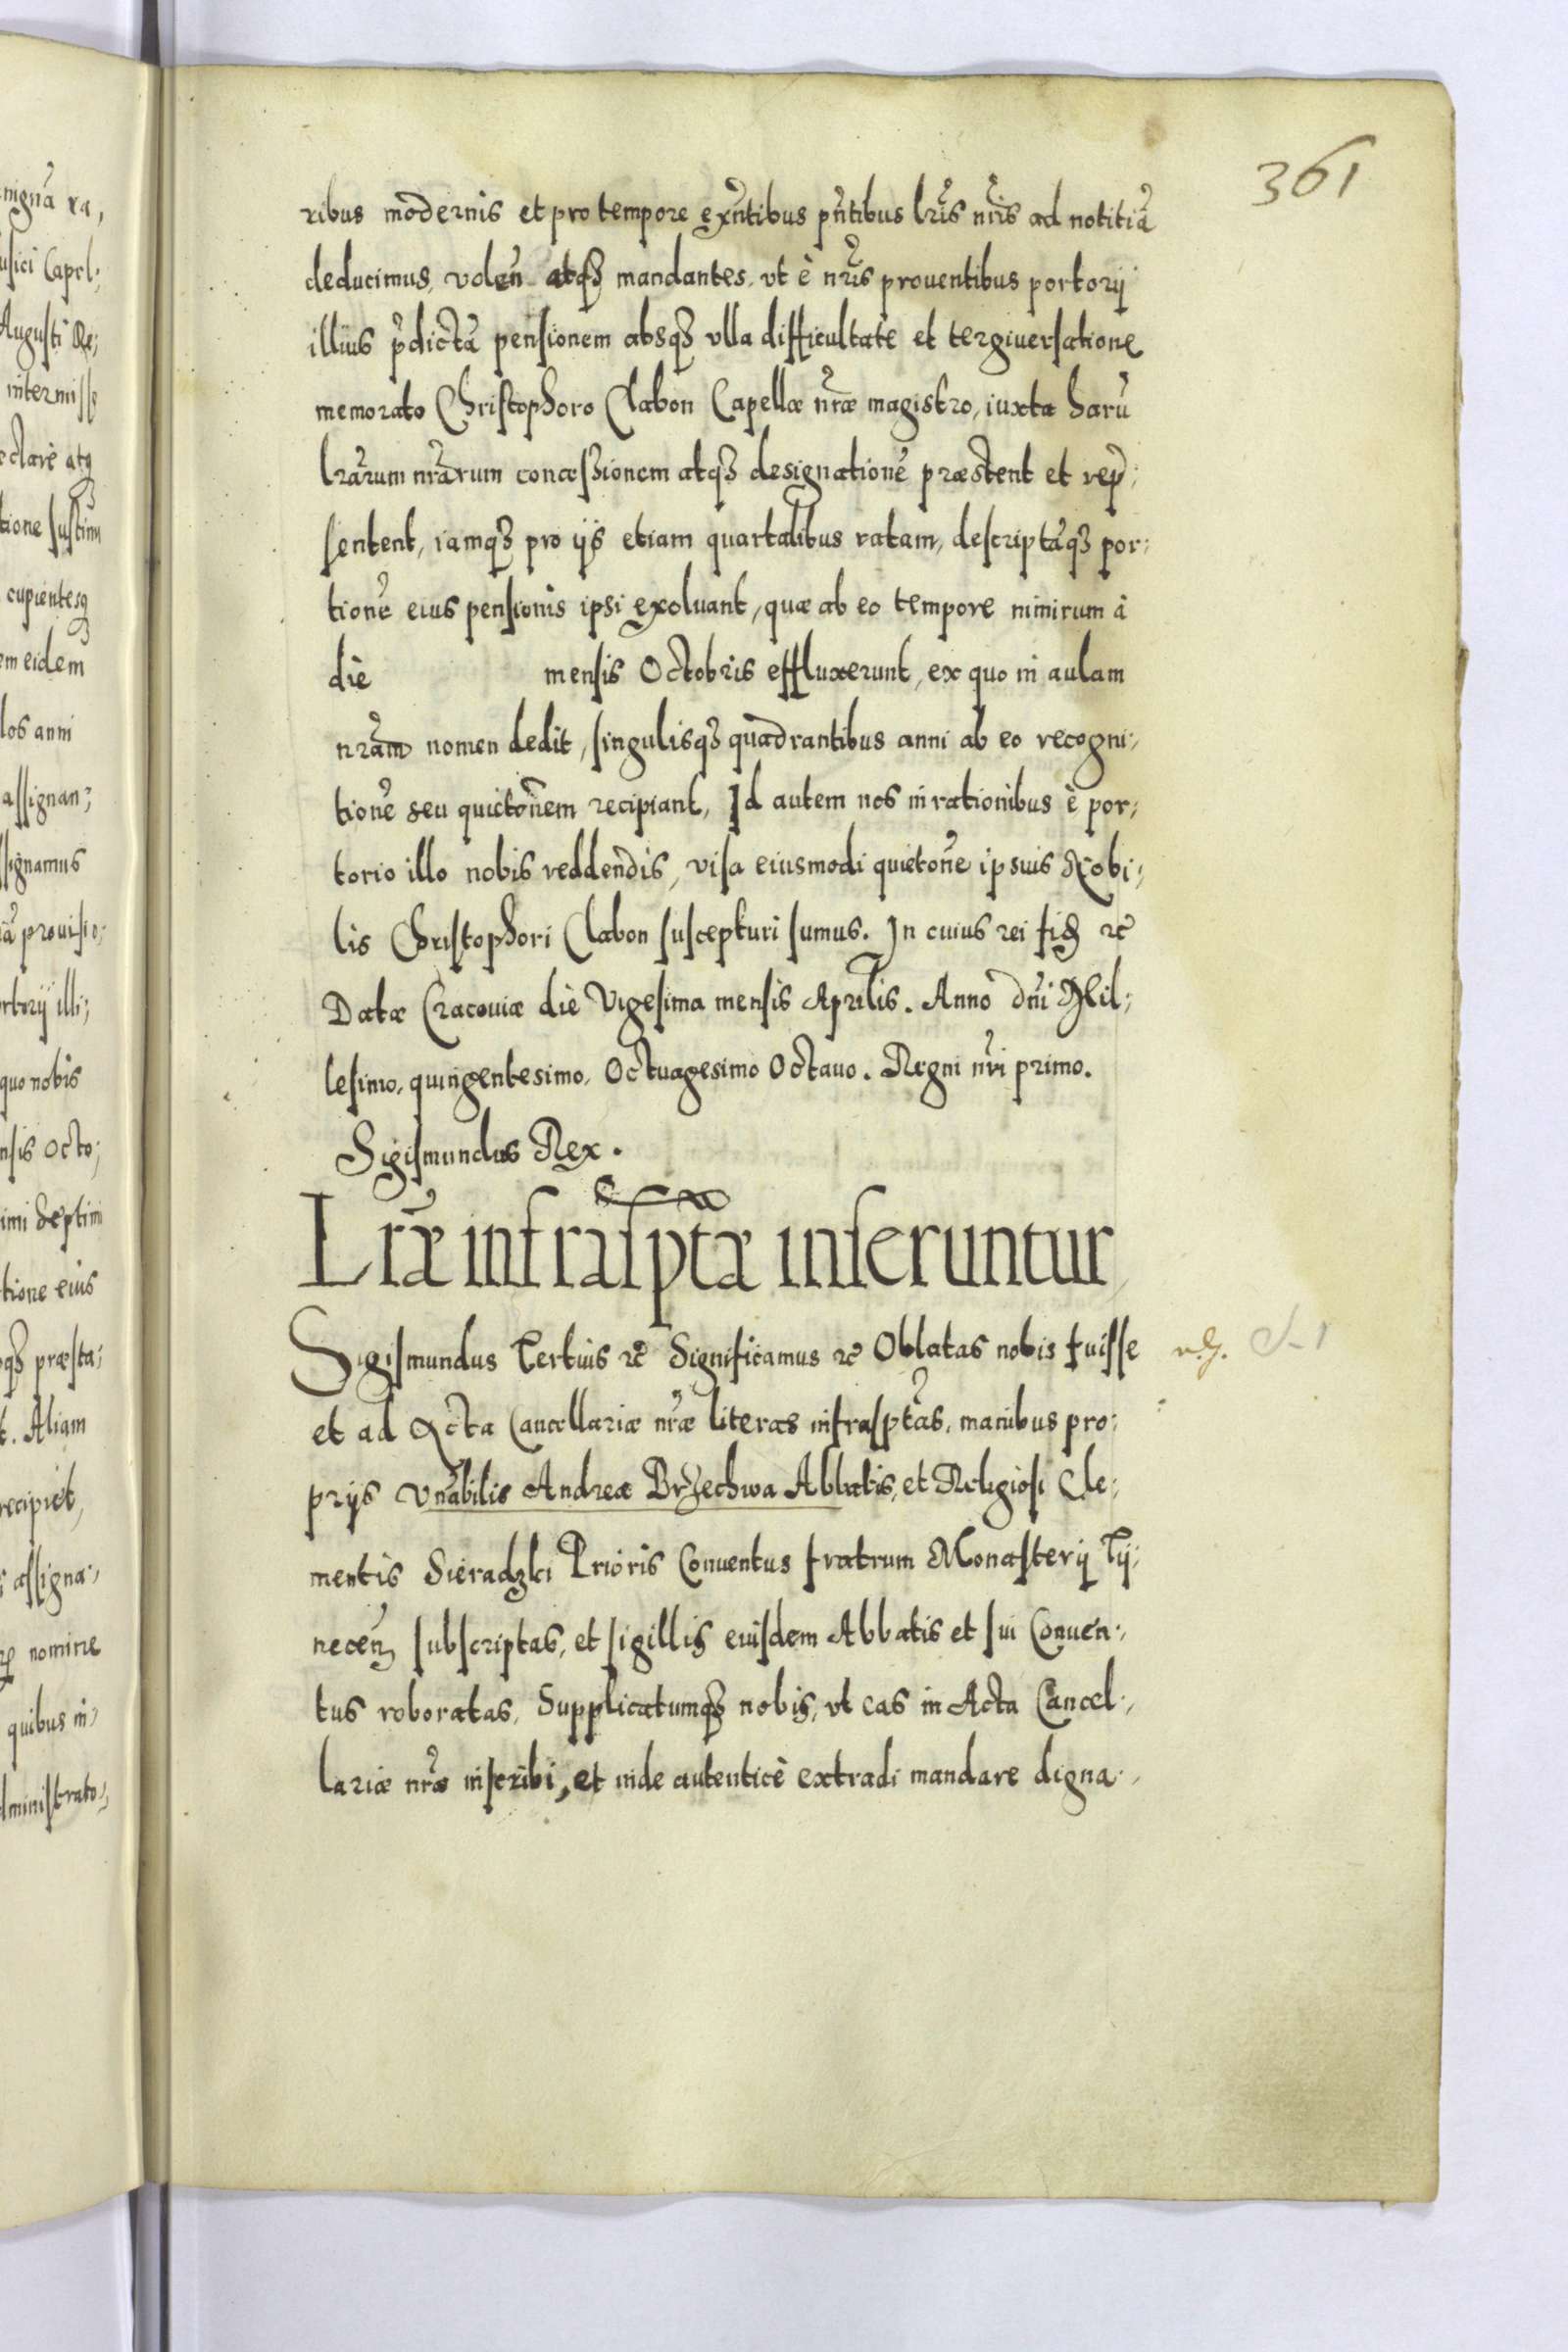 361
ribus modernis et pro tempore exñtibus pñtibus lris nris ad notitiã
deducimus, volen̄ atqȝ mandantes, vt è nris prouentibus portorij
illius p̃dictã pensionem absqȝ vlla difficultate et tergiuersatione
memorato Christophoro Clabon Capellæ nræ magistro, iuxta harũ
lrarum nrarum concessionem atqȝ designationẽ præstent et rep̃:
sentent, iamqȝ pro ijs etiam quartalibus ratam, descriptãqȝ por:
tionẽ eius pensionis ipsi exoluant, quæ ab eo tempore nimirum à
die mensis Octobris effluxerunt, ex quo in aulam
nram nomen dedit, singulisqȝ quadrantibus anni ab eo recogni:
tionẽ seu quictonẽm recipiant, Id autem nos in rationibus è por:
torio illo nobis reddendis, visa eiusmodi quietonẽ ipsius Nobi:
lis Christophori Clabon suscepturi sumus. In cuius rei fid̃ ꝛc̃
Datæ Cracouiæ die Vigesima mensis Aprilis. Anno dñi Mil:
lesimo, quingentesimo, Octuagesimo Octauo. Regni nri primo.
Sigismundus Rex.
Lræ infrasptæ inseruntur
Sigismundus Tertius ꝛc̃ Significamus ꝛc̃ Oblatas nobis fuisse
et ad Acta Cancellariæ nræ literas infrasptas, manibus pro:
prijs Vnabilis Andreæ Brzechwa Abbatis, et Religiosi Cle:
mentis Sieradzki Prioris Conuentus fratrum Monasterij Tÿ:
neceñ subscriptas, et sigillis eiusdem Abbatis et sui Conuen:
tus roboratas, Supplicatumqȝ nobis, vt eas in Acta Cancel:
lariæ nræ inscribi, et inde autenticè extradi mandare digna: